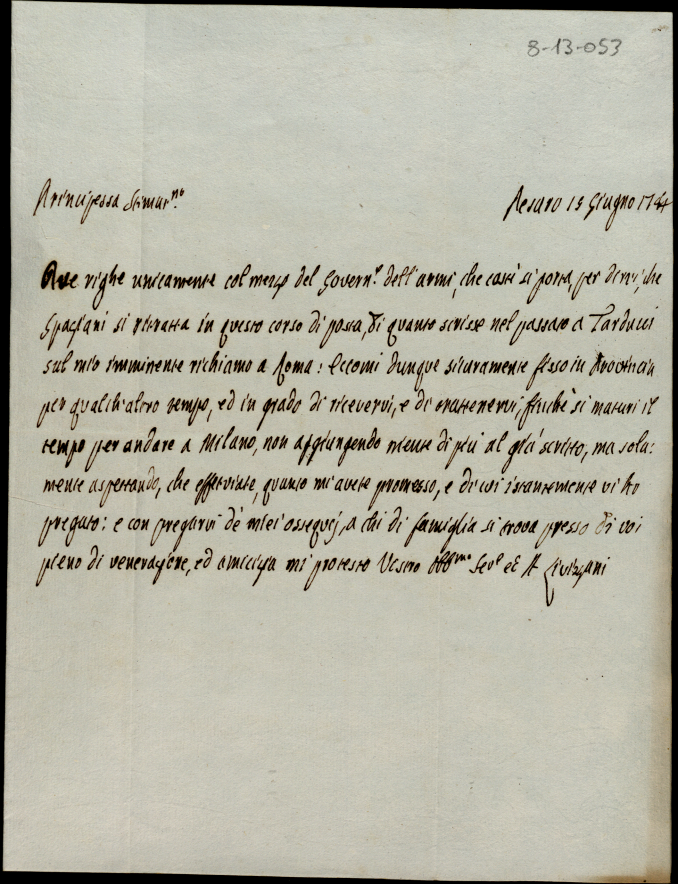 8-13-053
Principessa Stimat.ma
Pesaro 15 Giugno 1744
Due righe unicamente col mezzo del Govern.e dell'armi, che costì si porta, per dirvi, che
Graziani si ritratta in questo corso di posta, di quanto scrisse nel passato a Tarducci
sul mio imminente richiamo a Roma: eccomi dunque sicuramente fisso in Provincia
per qualch'altro tempo, ed in grado di ricevervi, e di trattenervi, finchè si maturi il
tempo per andare a Milano, non aggiungendo niente di più al già scritto, ma sola:
mente aspettando, che effettuiate, quanto m'avete promesso, e di cui istantemente vi ho
pregato: e con pregarvi de miei ossequj, a chi di famiglia si trova presso di voi
pieno di venerazione, ed amicizia mi protesto Vostro Obb.mo Se.re ed A Livizzani